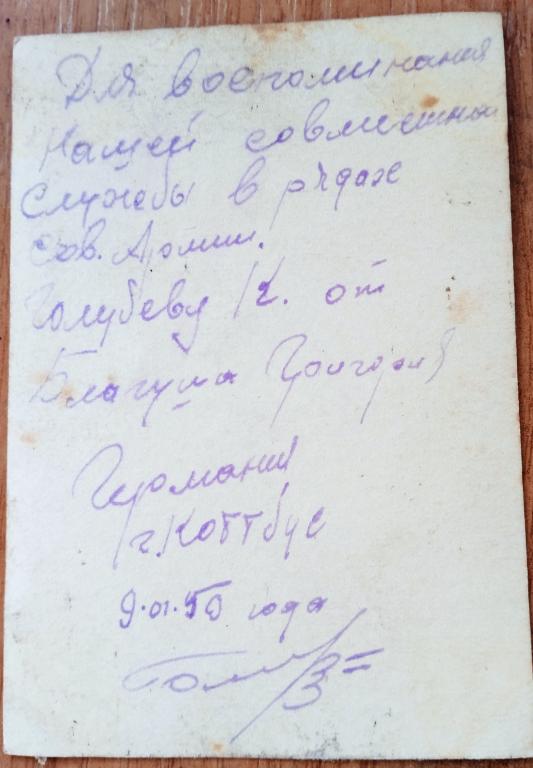 Для воспоминания
нашей совместной
службы в рядах
Сов. Армии.
Голубеву К. от
Благуша Григория
Германия
г. Коттбус
9.01.50 года